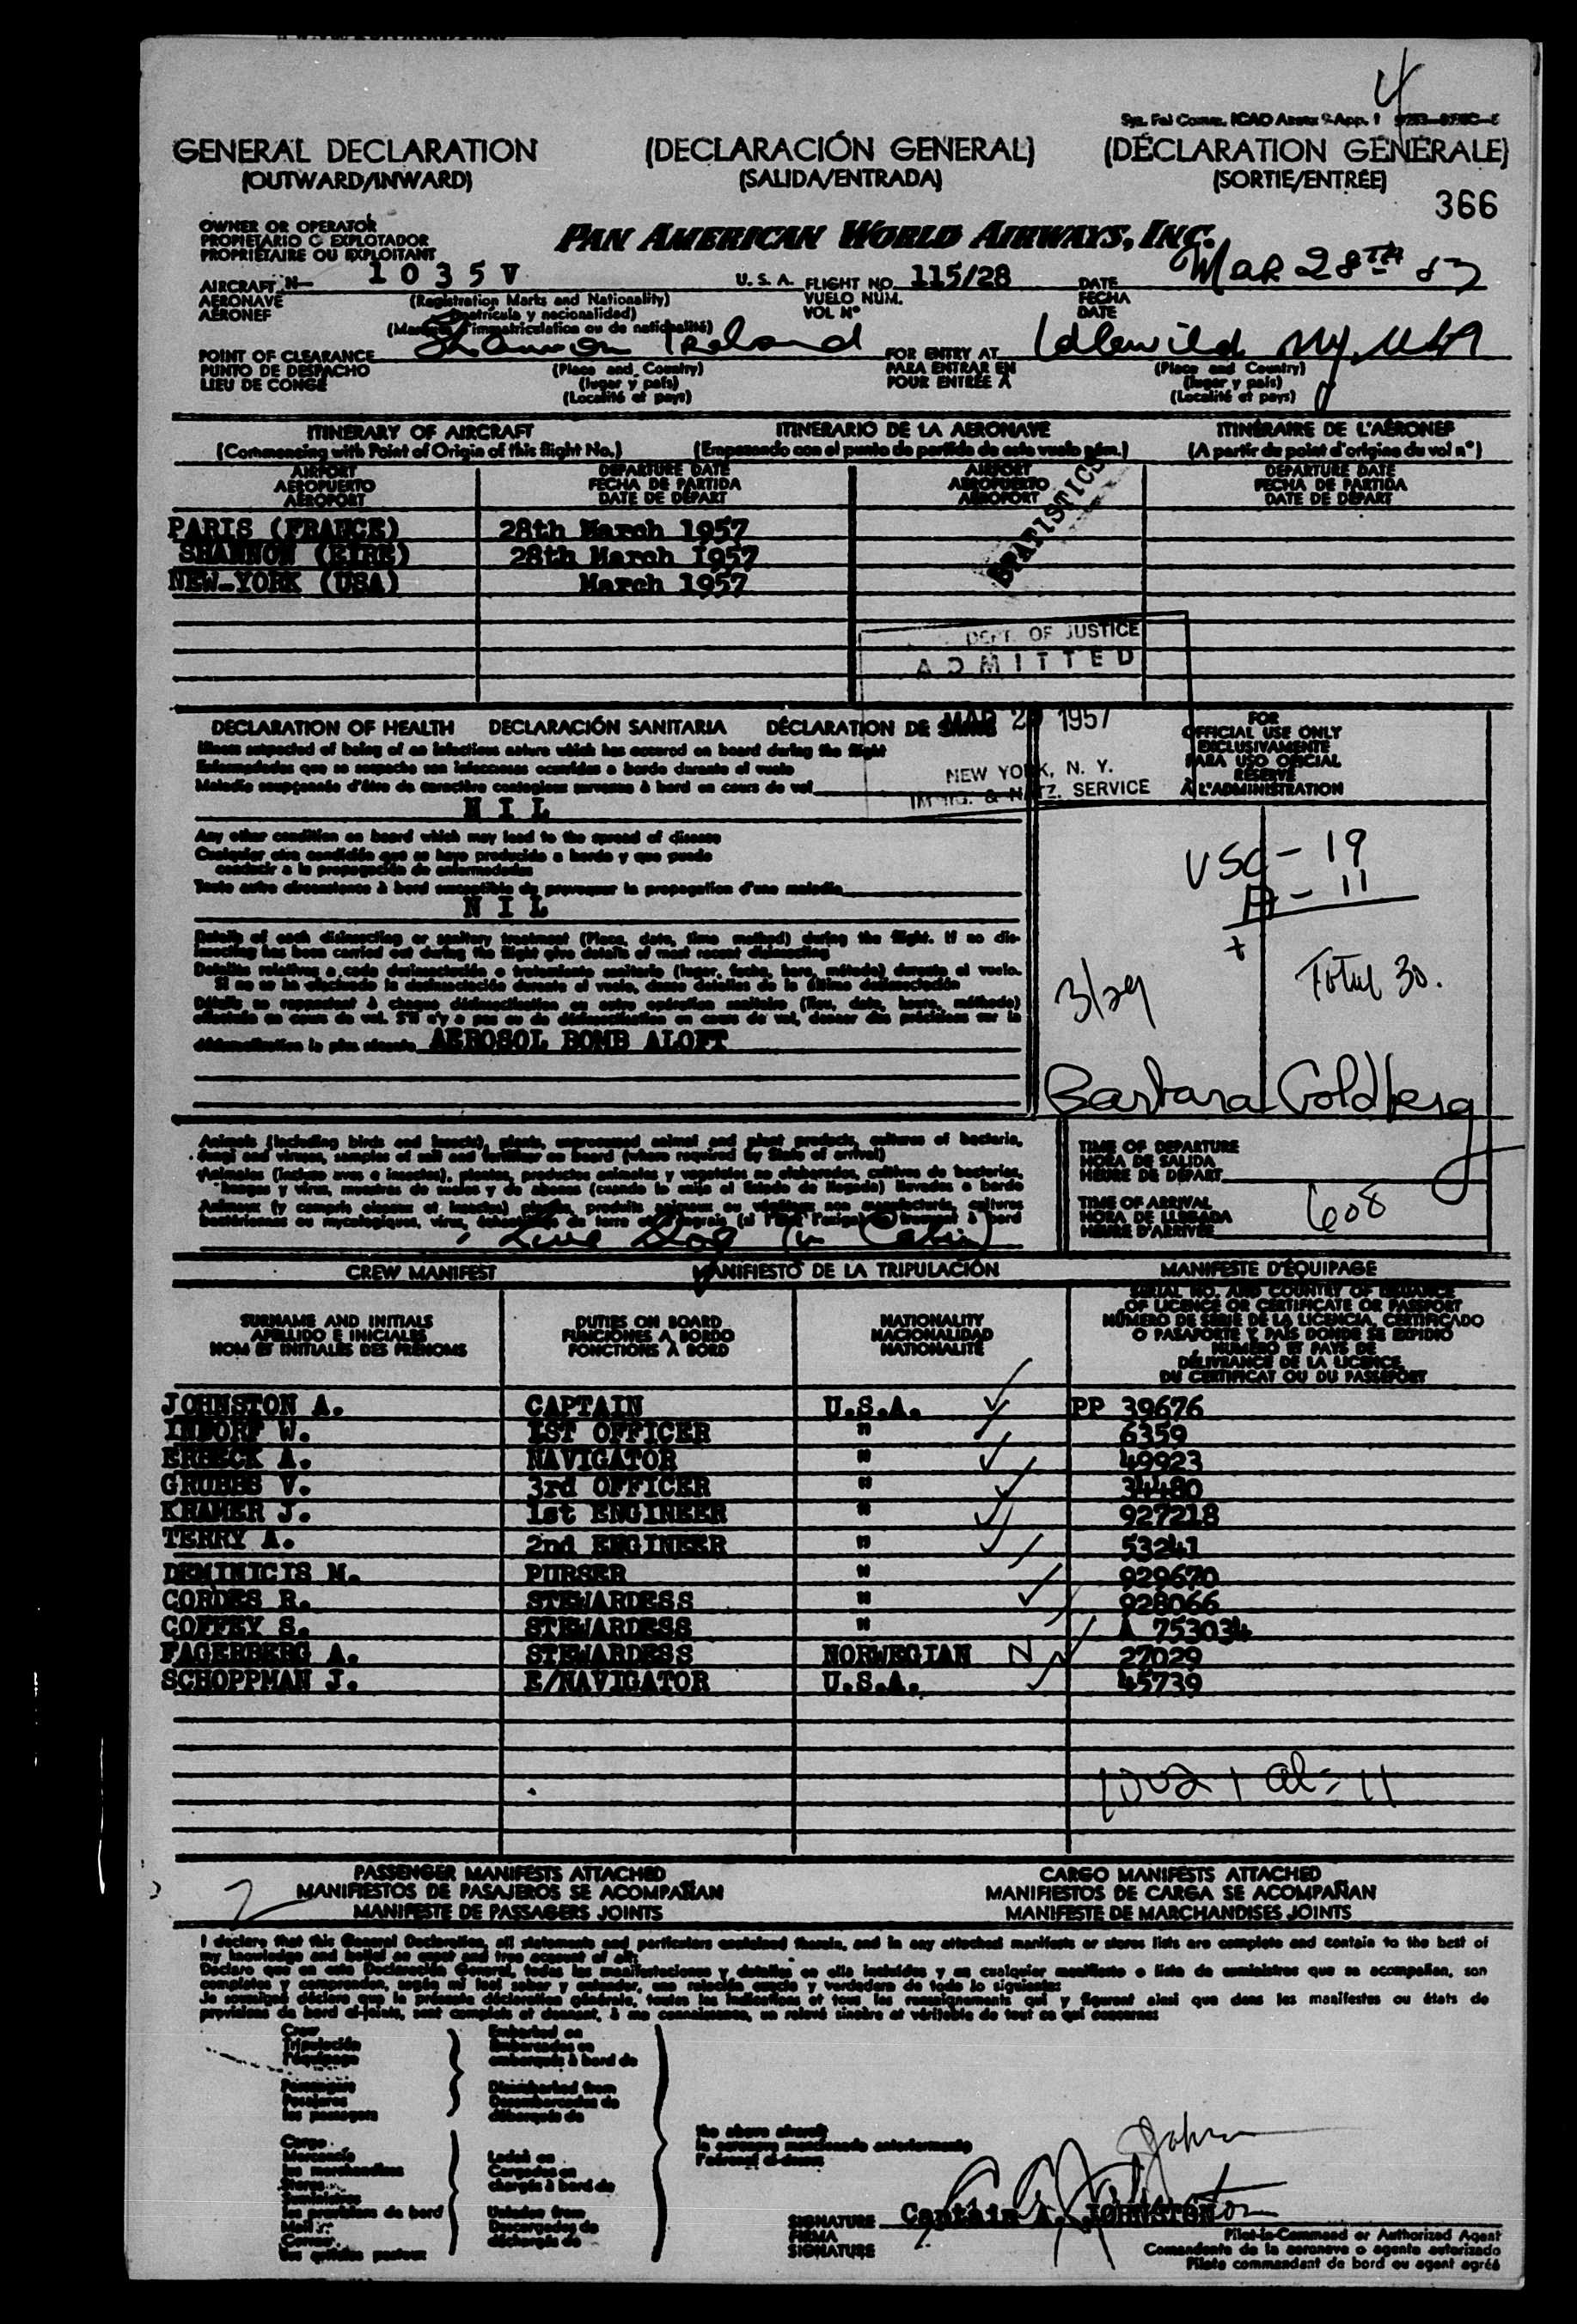 4
Syz. Fal Comm. ICAO Annex 9-App. 1
GENERAL DECLARATION (DECLARACIÓN GENERAL) (DÉCLARATION GÉNÉRALE)
(OUTWARD/INWARD) (SALIDA/ENTRADA) (SORTIE/ENTRÉE)
366
OWNER OR OPERATOR
PROPIETARIO O EXPLOTADOR
PROPRIÉTAIRE OU EXPLOITANT
PAN AMERICAN WORLD AIRWAYS, INC.
AIRCRAFT N— 1 0 3 5 V U. S. A. FLIGHT NO. 115/28 DATE Mar 28TH
AERONAVE (Registration Marks and Nationality) VUELO NUM. FECHA
AÉRONEF (Matrícula y nacionalidad) VOL Nº DATE
(Marques d'immatriculation ou de nationalité)
POINT OF CLEARANCE Shannon Ireland FOR ENTRY AT Idlewild NY, USA
PUNTO DE DESPACHO (Place and Country) PARA ENTRAR EN (Place and Country)
LIEU DE CONGÉ (lugar y país) POUR ENTRÉE À (lugar y país)
(Localité et pays) (Localité et pays)
ITINERARY OF AIRCRAFT ITINERARIO DE LA AERONAVE ITINÉRAIRE DE L'AÉRONEF
(Commencing with Point of Origin of this flight No.) (Empezando con el punto de partida de este vuelo núm.) (A partir du point d'origine du vol nº)
AIRPORT DEPARTURE DATE AIRPORT DEPARTURE DATE
AEROPUERTO FECHA DE PARTIDA AEROPUERTO FECHA DE PARTIDA
AÉROPORT DATE DE DÉPART AÉROPORT DATE DE DÉPART
STATISTICS
PARIS (FRANCE) 28th March 1957
SHANNON (EIRE) 28th March 1957
NEW-YORK (USA) March 1957
DEPT. OF JUSTICE
ADMITTED
MAR 29 1957
NEW YORK, N. Y.
IMMIG. & NATZ. SERVICE
DECLARATION OF HEALTH DECLARACIÓN SANITARIA DÉCLARATION DE SANTÉ
Illness suspected of being of an infectious nature which has occured on board during the flight
Enfermedades que se sospecha son infecciosas ocurridas a bordo durante el vuelo
Maladie soupçonnée d'être de caractère contagieux survenue à bord en cours de vol
N I L
FOR
OFFICIAL USE ONLY
EXCLUSIVAMENTE
PARA USO OFICIAL
RÉSERVÉ
À L'ADMINISTRATION
Any other condition on board which may lead to the spread of disease
Cualquier otra condición que se haya producido a bordo y que pueda
conducir a la propagación de enfermedades
Toute autre circonstance à bord susceptible de provoquer la propagation d'une maladie
N I L
USC - 19
A - 11
+
3/29
Total 30.
Details of each disinsecting or sanitary treatment (Place, date, time method) during the flight. If no dis-
insecting has been carried out during the flight give details of most recent disinsecting
Detalles relativos a cada desinsectación o tratamiento sanitario (lugar, fecha, hora, método) durante el vuelo.
Si no se ha efectuado la desinsectación durante el vuelo, dense detalles de la última desinsectación
Détails se rapportant à chaque désinsectisation ou autre opération sanitaire (lieu, date, heure, méthode)
effectuée en cours de vol. S'il n'y a pas eu de désinsectisation en cours de vol, donner des précisions sur la
désinsectisation la plus récente AEROSOL BOMB ALOFT
Barbara Goldberg
Animals (including birds and insects), plants, unprocessed animal and plant products, cultures of bacteria,
fungi and viruses, samples of soil and fertilizer on board (where required by State of arrival)
Animales (incluso aves e insectos), plantas, productos animales y vegetales no elaborados, cultivos de bacterias,
hongos y virus, muestras de suelos y de abonos (cuando lo exija el Estado de llegada) llevados a bordo
Live Dog in Cabin
TIME OF DEPARTURE
HORA DE SALIDA
HEURE DE DÉPART
TIME OF ARRIVAL
HORA DE LLEGADA
HEURE D'ARRIVÉE
608
CREW MANIFEST MANIFIESTO DE LA TRIPULACIÓN MANIFESTE D'ÉQUIPAGE
SURNAME AND INITIALS
APELLIDO E INICIALES
NOM ET INITIALES DES PRÉNOMS
DUTIES ON BOARD
FUNCIONES A BORDO
FONCTIONS À BORD
NATIONALITY
NACIONALIDAD
NATIONALITÉ
SERIAL NO. AND COUNTRY OF ISSUANCE
OF LICENCE OR CERTIFICATE OR PASSPORT
NÚMERO DE SERIE DE LA LICENCIA, CERTIFICADO
O PASAPORTE Y PAÍS DONDE SE EXPIDIÓ
NUMÉRO ET PAYS DE
DÉLIVRANCE DE LA LICENCE,
DU CERTIFICAT OU DU PASSEPORT
JOHNSTON A. CAPTAIN U.S.A. PP 39676
INDORF W. 1ST OFFICER " 6359
ERBECK A. NAVIGATOR " 49923
GRUBBS V. 3rd OFFICER " 34480
KRAMER J. 1st ENGINEER " 927218
TERRY A. 2nd ENGINEER " 53241
DEMINICIS M. PURSER " 929670
CORDES R. STEWARDESS " 928066
COFFEY S. STEWARDESS " A 753034
FAGERBERG A. STEWARDESS NORWEGIAN N 27029
SCHOPPMAN J. E/NAVIGATOR U.S.A. 45739
2
PASSENGER MANIFESTS ATTACHED CARGO MANIFESTS ATTACHED
MANIFIESTOS DE PASAJEROS SE ACOMPAÑAN MANIFIESTOS DE CARGA SE ACOMPAÑAN
MANIFESTE DE PASSAGERS JOINTS MANIFESTE DE MARCHANDISES JOINTS
I declare that this General Declaration, all statements and particulars contained therein, and in any attached manifests or stores lists are complete and contain to the best of
my knowledge and belief an exact and true account of all:
Declaro que en esta Declaración General, todas las manifestaciones y detalles en ella incluídos y en cualquier manifiesto o lista de suministros que se acompañan, son
completos y comprenden, según mi leal saber y entender, una relación exacta y verdadera de todo lo siguiente:
Je soussigné déclare que la présente déclaration générale, toutes les indications et tous les renseignements qui y figurent ainsi que dans les manifestes ou états de
provisions de bord ci-joints, sont complets et donnent, à ma connaissance, un relevé sincère et véritable de tout ce qui concerne:
Crew
Tripulación
l'équipage
Passengers
Pasajeros
les passagers
Embarked on
Embarcados en
embarqués à bord de
Disembarked from
Desembarcados de
débarqués de
Cargo
Mercancía
les marchandises
Stores
Suministros
les provisions de bord
Mail
Correo
Laded on
Cargados en
chargés à bord de
Unladen from
Descargados de
déchargés de
the above aircraft
la aeronave mencionada anteriormente
l'aéronef ci-dessus
SIGNATURE Captain A. JOHNSTON
FIRMA
SIGNATURE
Pilot-in-Command or Authorized Agent
Comandante de la aeronave o agente autorizado
Pilote commandant de bord ou agent agréé